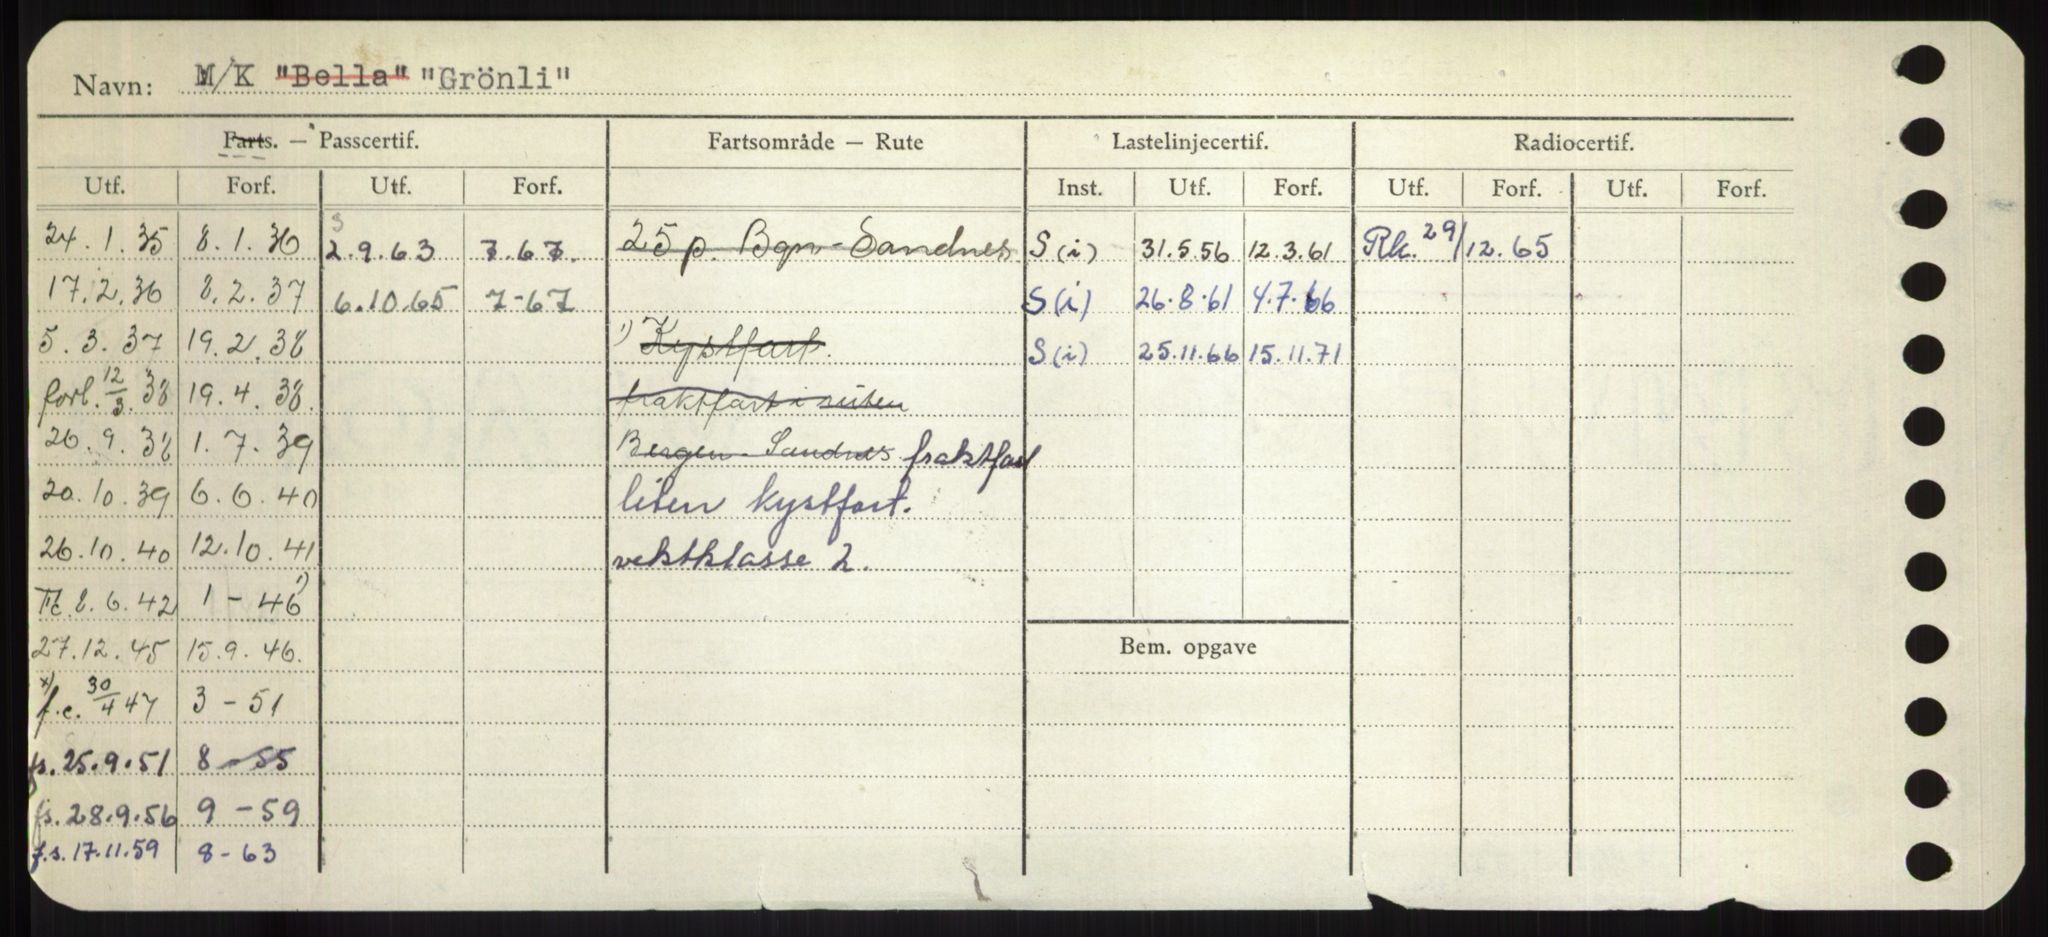 Navn: M/K "Bella" "Grönli"
Farts. — Passcertif. Fartsområde — Rute Lastelinjecertif. Radiocertif.
Utf. Forf. Utf. Forf. Inst. Utf. Forf. Utf. Forf. Utf. Forf.
24.1.35 8.1.36 2.9.63 7.67. 25 p. Bgn-Sandnes S(i) 31.5.56 12.3.61 Rk. 29/12.65
17.2.36 8.2.37 6.10.65 7-67 S(i) 26.8.61 4.7.66
5.3.37 19.2.38 1) Kystfart. S(i) 25.11.66 15.11.71
forl. 12/3.38 19.4.38. fraktfart i ruten
26.9.38 1.7.39 Bergen-Sandnes fraktfart
20.10.39 6.6.40 liten kystfart.
26.10.40 12.10.41 vektklasse 2.
Fc. 8.6.42 1-46 1)
27.12.45 15.9.46.
x) f.c. 30/4 47 3-51
fs. 25.9.51 8-55
fs. 28.9.56 9-59
f.s. 17.11.59 8-63
Bem. opgave